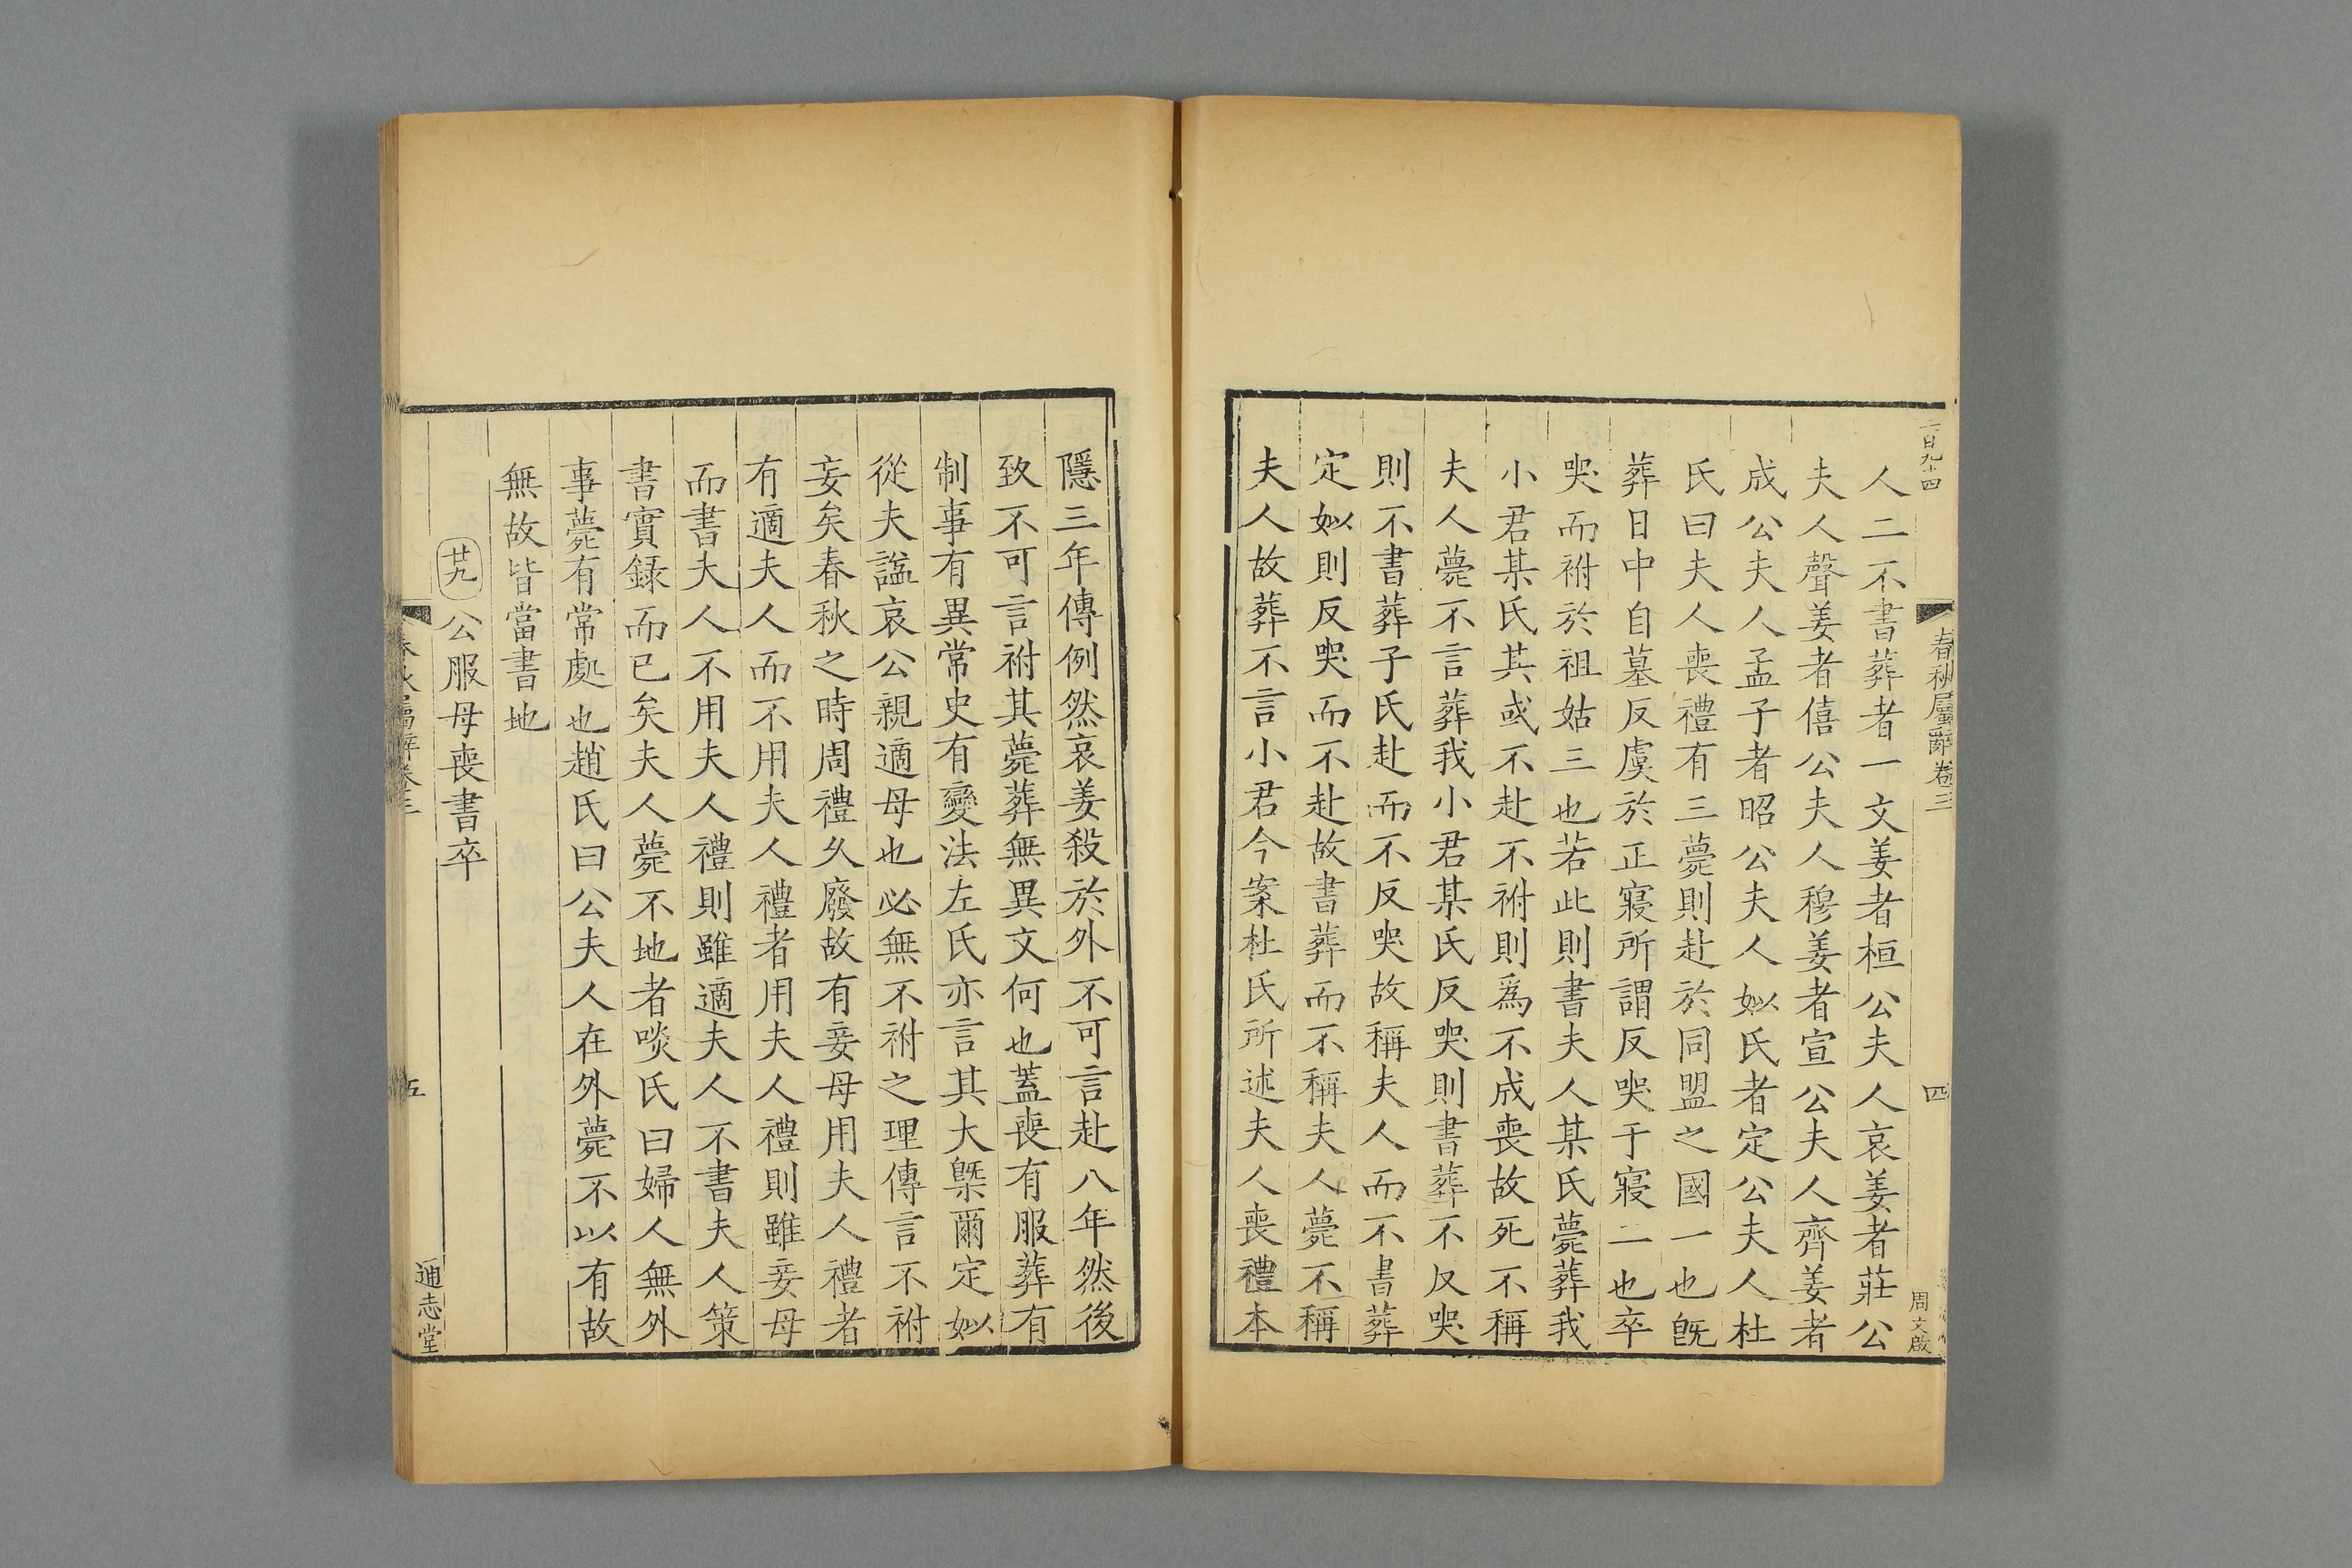 二百九十四
春秋屬辭卷三
四
周文啟
人二不書葬者一文姜者桓公夫人哀姜者莊公
夫人聲姜者僖公夫人穆姜者宣公夫人齊姜者
成公夫人孟子者昭公夫人姒氏者定公夫人杜
氏曰夫人喪禮有三薨則赴於同盟之國一也旣
葬日中自墓反虞於正寢所謂反哭于寢二也卒
哭而祔於祖姑三也若此則書夫人某氏薨葬我
小君某氏其或不赴不祔則爲不成喪故死不稱
夫人薨不言葬我小君某氏反哭則書葬不反哭
則不書葬子氏赴而不反哭故稱夫人而不書葬
定姒則反哭而不赴故書葬而不稱夫人薨不稱
夫人故葬不言小君今案杜氏所述夫人喪禮本
隱三年傳例然哀姜殺於外不可言赴八年然後
致不可言祔其薨葬無異文何也蓋喪有服葬有
制事有異常史有變法左氏亦言其大槩爾定姒
從夫諡哀公親適母也必無不祔之理傳言不祔
妄矣春秋之時周禮久廢故有妾母用夫人禮者
有適夫人而不用夫人禮者用夫人禮則雖妾母
而書夫人不用夫人禮則雖適夫人不書夫人策
書實録而已矣夫人薨不地者啖氏曰婦人無外
事薨有常處也趙氏曰公夫人在外薨不以有故
無故皆當書地
廿九公服母喪書卒
春秋屬辭卷三
五
通志堂